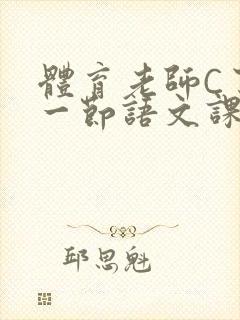 體育老師C
一節語文課
邱思魁